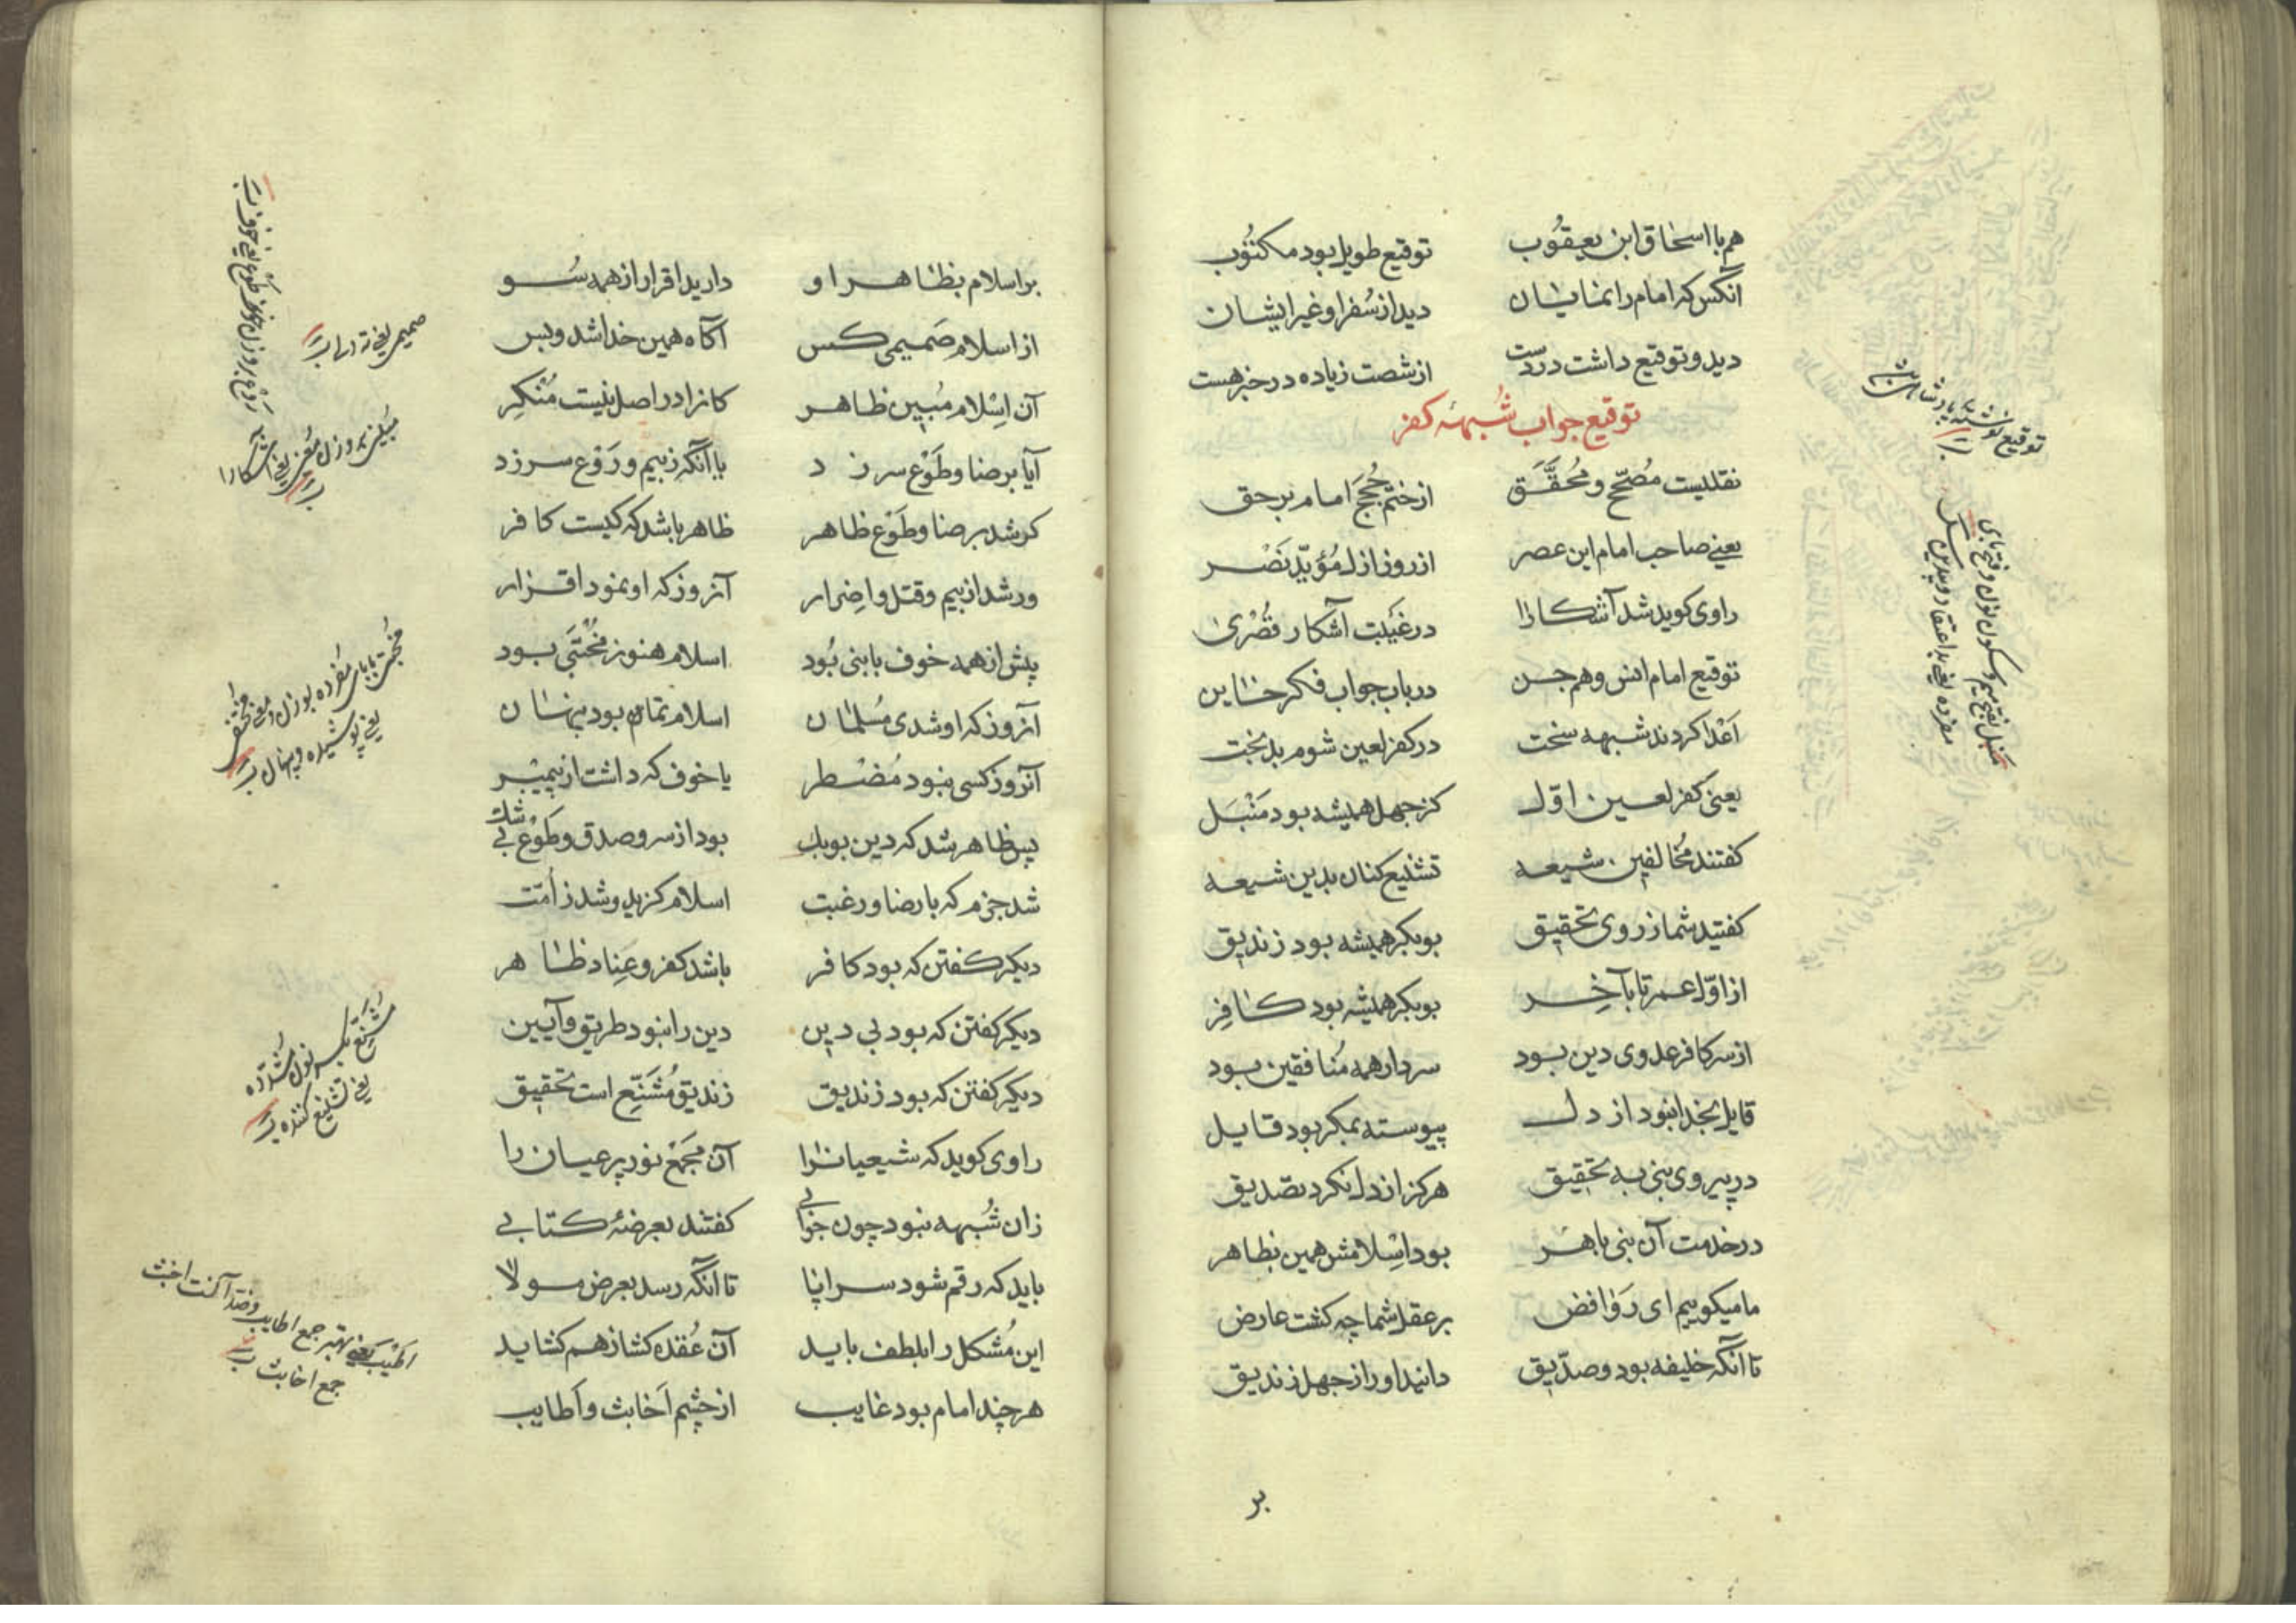 هم با اسحاق ابن یعقوُب توقیع طویل بود مکتوُب
آنکس که امام را نمایان دید از سُفرا و غیر ایشان
دید و توقیع داشت در دست از شصت زیاده در خبر هست
توقیع جواب شُبهۀ کفر
نقلیست مُصحّح و مُحقَّق از ختم حُجَج امام بر حق
یعنے صاحب امام این عصر از روز ازل مُؤیّد نَصْر
راوی کوید شد آشکارا در غَیبت آشکار قُصْریٰ
توقیع امام انس و هم جن در باب جواب فکر خاین
اَعْدا کردند شبهه سخت در کفر لعین شوم بدبخت
یعنی کفر لعین اوّل کز جهل همیشه بود مَنْبَل
کفتند مُخالفین شیعه تشنیع کنان بدین شیعه
کفتید شما ز روی تحقیق بوبکر همیشه بود زندیق
از اوّل عمر تا بآخِر بوبکر همیشه بود کافِر
از سر کافر عدوی دین بود سردار همه مُنافقین بود
قایل بخدا نبود از دل پیوسته بمکر بود قایل
در پیروی نبی به تحقیق هرکز از دل نکرد تصدیق
در خدمت آن نبی باهَر بود اِسْلامش همین بظاهر
ما میکوییم ای رَوافض بر عقل شما چه کشت عارض
تا آنکه خلیفه بود و صدّیق دانید او را ز جهل زندیق
بر
توقیع نوشته پادشاهان
مَنبل بفتح میم و سکون نون و فتح بای
مفرده یعنے بد اعتقاد و بیدین
بر اسلام بظاهر او دارید اقرار از همه سُو
از اسلام صَمیمی کس آکاه همین خدا شد و بس
آن اِسْلام مُبین ظاهر کانرا در اصل نیست مُنْکِر
آیا برضا و طَوْع سر زد با آنکه ز بیم و رَوْع سر زد
کر شد برضا و طَوْع ظاهر ظاهر باشد که کیست کافر
ور شد از بیم و قتل و اِضرار آنروز که او نمود اقرار
پیش از همه خوف با نبی بُود اسلام هنوز مُخْتَبی بود
آنروز که او شدی مُسلمان اسلام تمام بود پنهان
آنروز کسی نبود مُضْطر یا خوف که داشت از پیمبر
پس ظاهر شد که دین بوبک بود از سر و صدق و طَوْع بی شک
شد جزم که با رضا و رغبت اسلام کزید و شد ز اُمّت
دیکر کفتن که بود کافر باشد کفر و عِناد ظاهر
دیکر کفتن که بود بی دین دین را نبود طریق و آیین
دیکر کفتن که بود زندیق زندیق مُشَنِّع است تحقیق
راوی کوید که شیعیانرا آن مَجمَع نور پر عیان را
زان شُبهه نبود چون جوابی کفتند بعرضۀ کتابے
باید که رقم شود سراپا تا آنکه رسد بعرض مولا
این مُشکل را بلطف باید آن عُقده کشا ز هم کشاید
هر چند امام بود غایب از چشم اَخابث و اَطایب
صمیمی یعنے ته دلی
مُبین بر وزن مُعین یعنے آشکارا
مُختبی بابای مفرده بوزن و معنی مختفی
یعنے پوشیده و پنهان
یعنے تشنیع کننده
اطیب یعنے بهتر جمع اطایب و ضدّ آنست اخبث
جمع اخابث